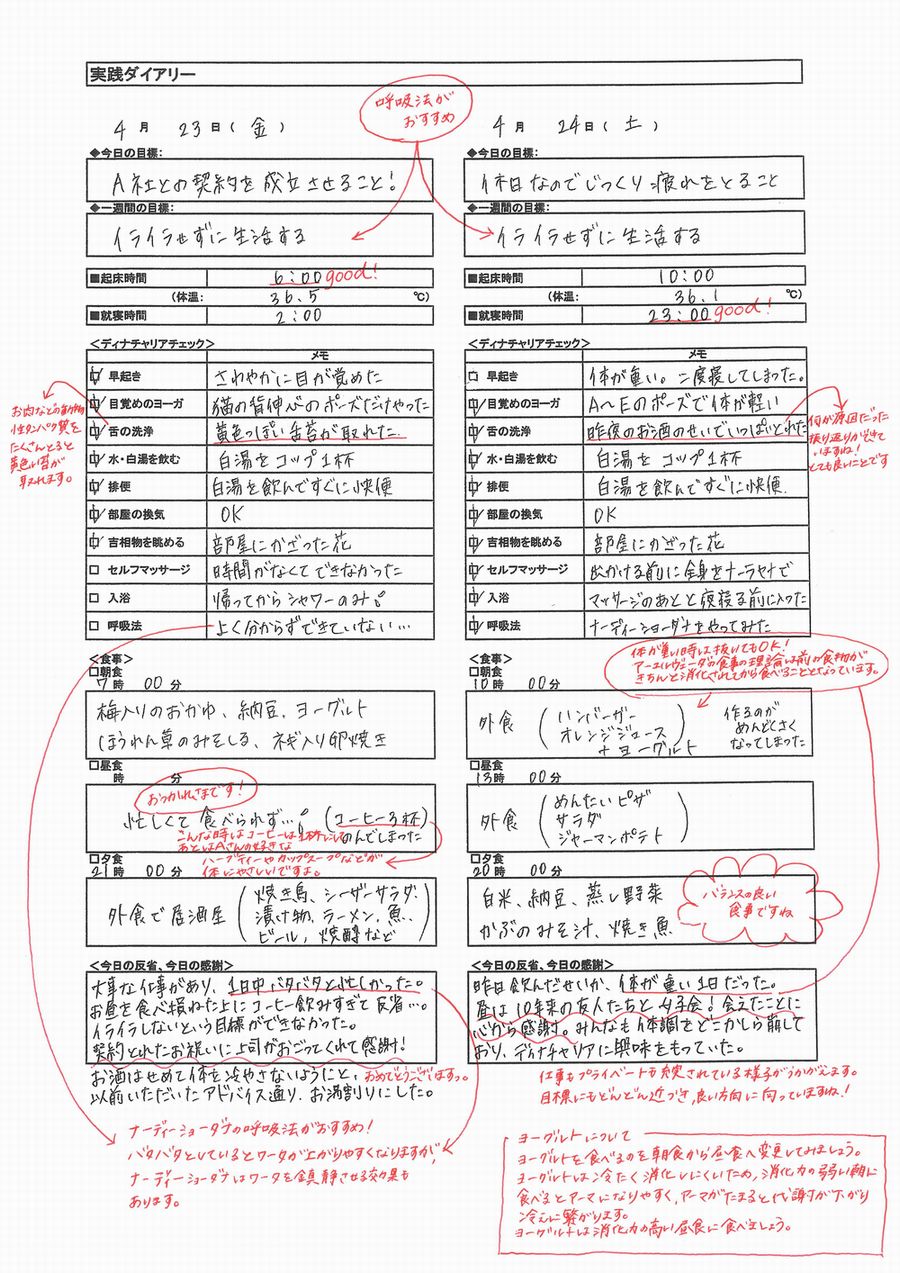 実践ダイアリー
呼吸法が
おすすめ
4月 23日(金)
◆今日の目標:
A社との契約を成立させること!
◆一週間の目標:
イライラせずに生活する
■起床時間 6:00 good!
(体温: 36.5 ℃)
■就寝時間 2:00
<ディナチャリアチェック>
メモ
早起き さわやかに目が覚めた
目覚めのヨーガ 猫の背伸びのポーズだけやった
舌の洗浄 黄色っぽい舌苔が取れた
水・白湯を飲む 白湯をコップ1杯
排便 白湯を飲んですぐに快便
部屋の換気 OK
吉相物を眺める 部屋にかざった花
セルフマッサージ 時間がなくてできなかった
入浴 帰ってからシャワーのみ
呼吸法 よく分からずできていない…
お肉などの動物
性タンパク質を
たくさんとると
黄色い苔が
取れます。
<食事>
□朝食
7時 00分
梅入りのおかゆ、納豆、ヨーグルト
ほうれん草のみそしる、ネギ入り卵焼き
□昼食
時 分
おつかれさまです!
忙しくて食べられず…。(コーヒー3杯)
のんでしまった
こんな時はコーヒーは1杯にして
あとはAさんの好きな
ハーブティーやカップスープなどが
体にやさしいですよ。
□夕食
21時 00分
外食で居酒屋
焼き鳥、シーザーサラダ、
漬け物、ラーメン、魚、
ビール、焼酎など
<今日の反省、今日の感謝>
大事な仕事があり、1日中バタバタと忙しかった。
お昼を食べ損ねた上にコーヒー飲みすぎて反省…。
イライラしないという目標ができなかった。
契約とれたお祝いに上司がおごってくれて感謝!
お酒はせめて体を冷やさないようにと、
以前いただいたアドバイス通り、お湯割りにした。
おめでとうございますっ。
ナーディーショーダナの呼吸法がおすすめ!
バタバタとしているとワータが上がりやすくなりますが、
ナーディーショーダナはワータを鎮静させる効果も
あります。
4月 24日(土)
◆今日の目標:
休日なのでじっくり疲れをとること
◆一週間の目標:
イライラせずに生活する
■起床時間 10:00
(体温: 36.1 ℃)
■就寝時間 23:00 good!
<ディナチャリアチェック>
メモ
早起き 体が重い。二度寝してしまった。
目覚めのヨーガ A〜Eのポーズで体が軽い
舌の洗浄 昨夜のお酒のせいでいっぱいとれた
水・白湯を飲む 白湯をコップ1杯
排便 白湯を飲んですぐに快便
部屋の換気 OK
吉相物を眺める 部屋にかざった花
セルフマッサージ 出かける前に全身をナーラヤナで
入浴 マッサージのあとと夜寝る前に入った
呼吸法 ナーディーショーダナをやってみた
何が原因だった
振り返りができて
いますね!
とても良いことです
<食事>
体が重い時は抜いてもOK!
アーユルヴェーダの食事の理論は前の食物が
きちんと消化されてから食べることとなっています。
□朝食
10時 00分
外食
ハンバーガー
オレンジジュース
+ヨーグルト
作るのが
めんどくさく
なってしまった
□昼食
13時 00分
外食
めんたいピザ
サラダ
ジャーマンポテト
□夕食
20時 00分
白米、納豆、蒸し野菜
かぶのみそ汁、焼き魚
バランスの良い
食事ですね
<今日の反省、今日の感謝>
昨日飲んだせいか、体が重い1日だった。
昼は10年来の友人たちと女子会!会えたことに
心から感謝。みんなも体調をどこかしら崩して
おり、ディナチャリアに興味をもっていた。
仕事もプライベートも充実されている様子がうかがえます。
目標にもどんどん近づき、良い方向に向っていますね!
ヨーグルトについて
ヨーグルトを食べるのを朝食から昼食へ変更してみましょう。
ヨーグルトは冷たく消化しにくいため、消化力の弱い朝に
食べるとアーマになりやすく、アーマがたまると代謝が下がり
冷えに繋がります。
ヨーグルトは消化力の高い昼食に食べましょう。